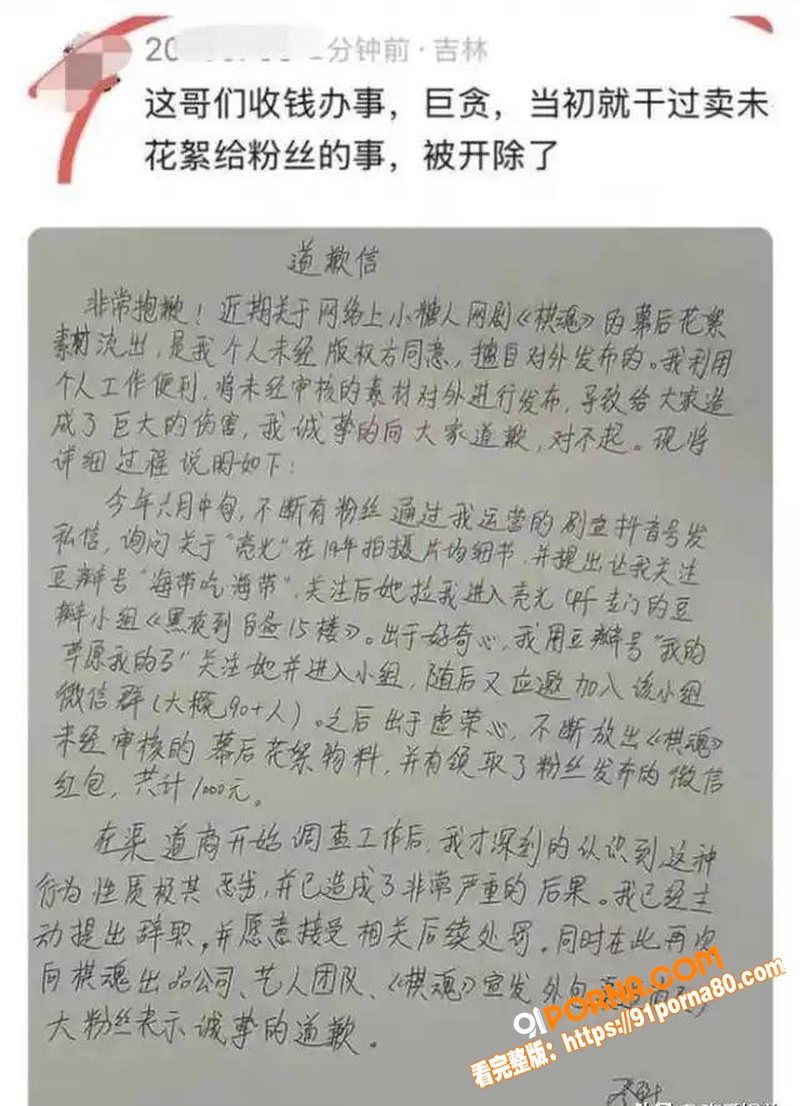 分钟前·吉林
这哥们收钱办事，巨贪，当初就干过卖未
花絮给粉丝的事，被开除了
道歉信
非常抱歉！近期关于网络上小糖人网剧《棋魂》的幕后花絮
素材流出，是我个人未经版权方同意，擅自对外发布的。我利用
个人工作便利，将未经审核的素材对外进行发布，导致给大家造
成了巨大的伤害，我诚挚的向大家道歉，对不起。现将
详细过程说明如下：
今年六月中旬，不断有粉丝通过我运营的剧宣抖音号发
私信，询问关于“亮光”在19年拍摄片场细节，并提出让我关注
豆瓣号“海带吃海带”，关注后她拉我进入亮光的豆
瓣小组《黑夜到白昼15楼》。出于好奇心，我用豆瓣号“我的
草原我的了”关注她并进入小组，随后又应邀加入该小组
微信群（大概90+人）。之后出于虚荣心，不断放出《棋魂》
未经审核的幕后花絮物料，并有领取了粉丝发布的微信
红包，共计1000元。
在渠道商开始调查工作后，我才深刻的认识到这种
行为性质极其恶劣，并已造成了非常严重的后果。我已经主
动提出辞职，并愿意接受相关后续处罚。同时在此再次
向棋魂出品公司、艺人团队、《棋魂》宣发外包
大粉丝表示诚挚的道歉。
91PORNA.COM
看完整版：https://91porna80.com